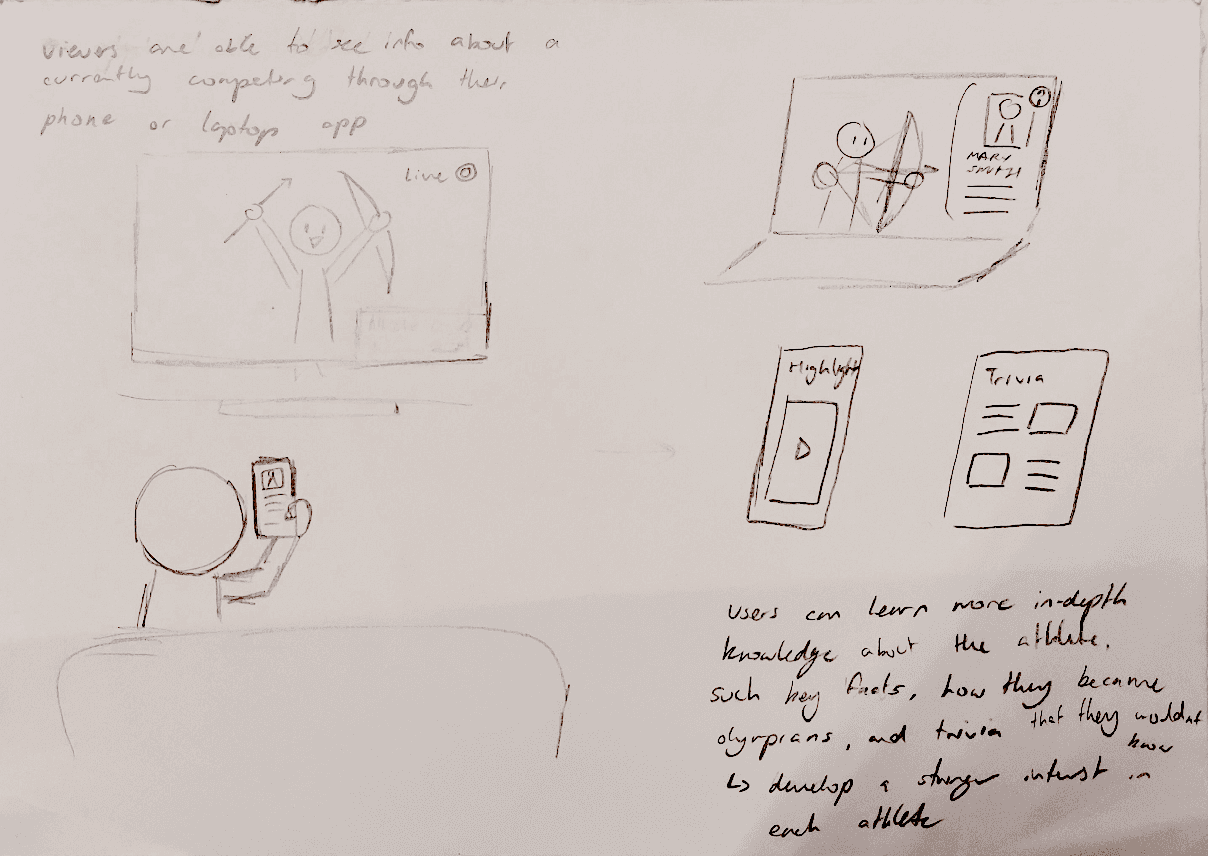 viewers are able to see info about a
currently competing through their
phone or laptops app
Live
MARY
SMITH
Highlight
Trivia
users can learn more in-depth
knowledge about the athlete.
such key facts, how they became
olympians, and trivia that they wouldnt
know
↳ develop a stronger interest in
each athlete